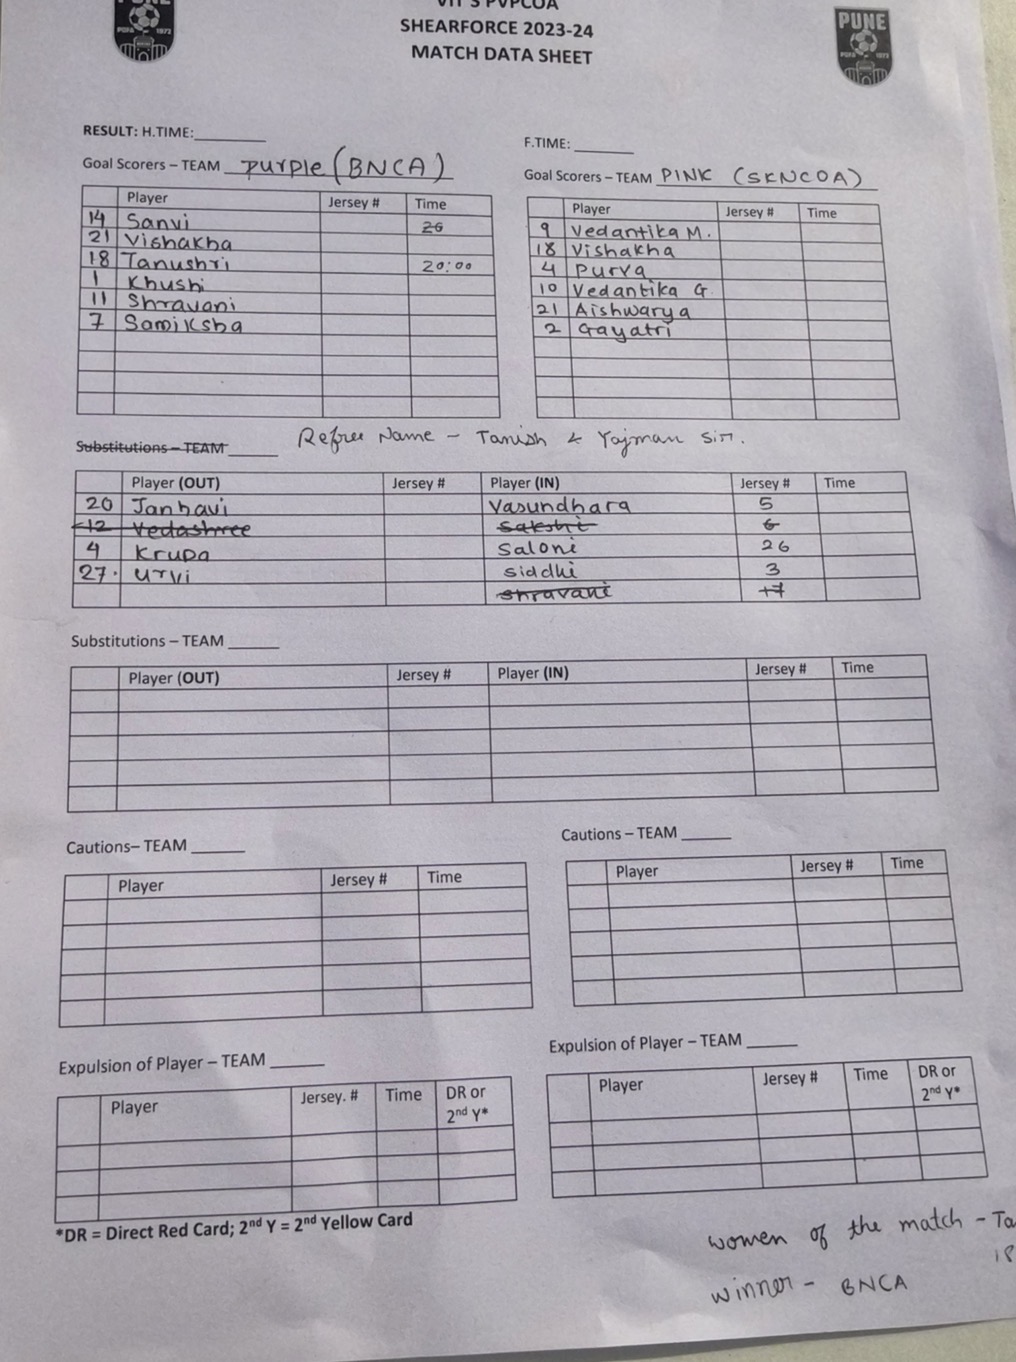 VIT'S PVPCOA
SHEARFORCE 2023-24
MATCH DATA SHEET
PUNE
PDFA 1972
RESULT: H.TIME:
F.TIME:
Goal Scorers – TEAM Purple (BNCA)
Player Jersey # Time
14 Sanvi 26
21 Vishakha
18 Tanushri 20:00
1 Khushi
11 Shravani
7 Samiksha
Goal Scorers – TEAM PINK (SKNCOA)
Player Jersey # Time
9 Vedantika M.
18 Vishakha
4 Purva
10 Vedantika G
21 Aishwarya
2 Gayatri
Substitutions – TEAM
Refree Name - Tanish & Yajman Sir.
Player (OUT) Jersey # Player (IN) Jersey # Time
20 Janhavi Vasundhara 5
12 Vedashree Sakshi 6
4 Krupa Saloni 26
27. Urvi Siddhi 3
Shravani 17
Substitutions – TEAM
Player (OUT) Jersey # Player (IN) Jersey # Time
Cautions– TEAM
Player Jersey # Time
Cautions – TEAM
Player Jersey # Time
Expulsion of Player – TEAM
Player Jersey. # Time DR or 2nd Y*
Expulsion of Player – TEAM
Player Jersey # Time DR or 2nd Y*
*DR = Direct Red Card; 2nd Y = 2nd Yellow Card
women of the match - Ta
18
winner - BNCA